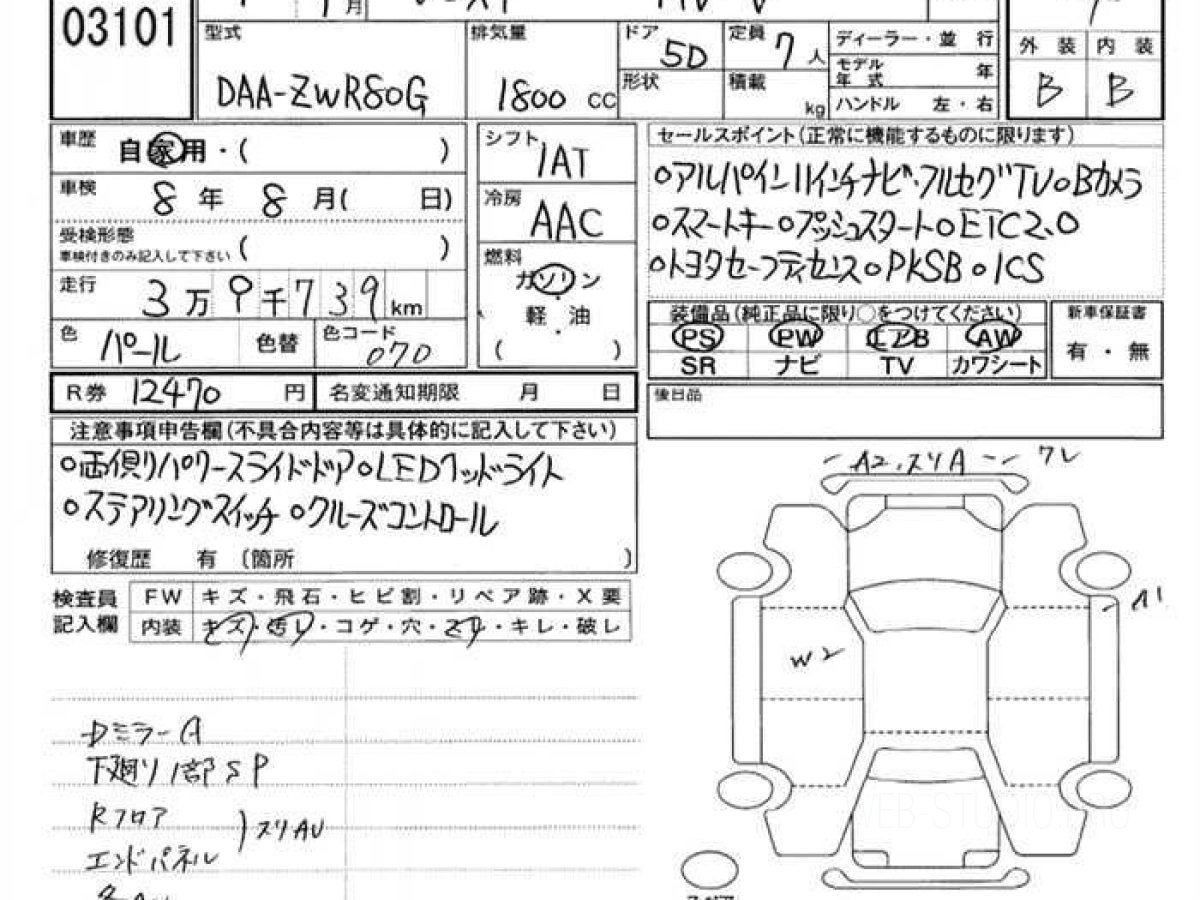 03101
月
型式
DAA-ZWR80G
排気量
1800 cc
ドア
5D
定員
7人
形状
積載
kg
ディーラー・並 行
モデル年式 年
ハンドル 左・右
外 装 内 装
B B
車歴 自家用・( )
車検 8年 8月( 日)
受検形態
車検付きのみ記入して下さい ( )
走行 3万9千739km
色 パール 色替 色コード 070
シフト
IAT
冷房
AAC
燃料
ガソリン
・
軽・油
・
( )
セールスポイント(正常に機能するものに限ります)
○アルパイン11インチナビ・フルセグTV○Bカメラ
○スマートキー○プッシュスタート○ETC2.0
○トヨタセーフティセンス○PKSB○ICS
装備品(純正品に限り○をつけてください)
PS PW エアB AW
SR ナビ TV カワシート
新車保証書
有・無
R券 12470 円 名変通知期限 月 日
後日品
注意事項申告欄(不具合内容等は具体的に記入して下さい)
○両側パワースライドドア○LEDヘッドライト
○ステアリングスイッチ ○クルーズコントロール
修復歴 有 〔箇所 )
検査員
記入欄
FW キズ・飛石・ヒビ割・リペア跡・X要
内装 キズ・汚レ・コゲ・穴・スリ・キレ・破レ
A2.スリA ワレ
A1
W2
Dミラー A
下廻り1部SP
Rフロア
エンドパネル
スリAU
WEB-STUDIO.PRO